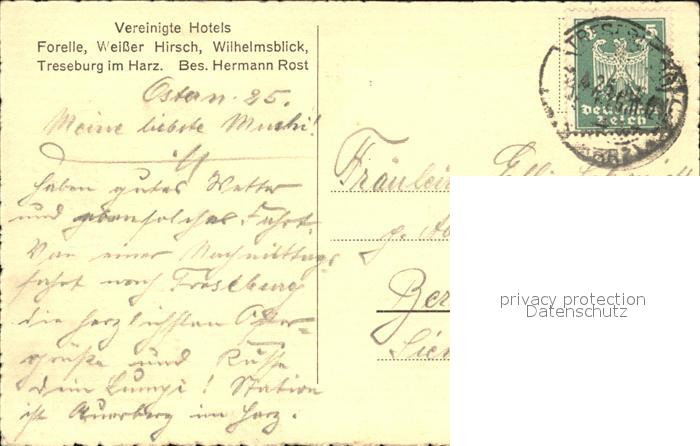 Vereinigte Hotels
Forelle, Weißer Hirsch, Wilhelmsblick,
Treseburg im Harz. Bes. Hermann Rost
Ostern. 25.
Meine liebste Muschi!
haben gutes Wetter
und ebensolche Fahrt.
Von einer Nachmittags
fahrt nach Treseburg
die herzlichsten Oster-
grüße und Küsse
dein Lumpi! Station
ist Auerberg im Harz.
5
Deutsches
Reich
Fräulein
Ber
privacy protection
Datenschutz